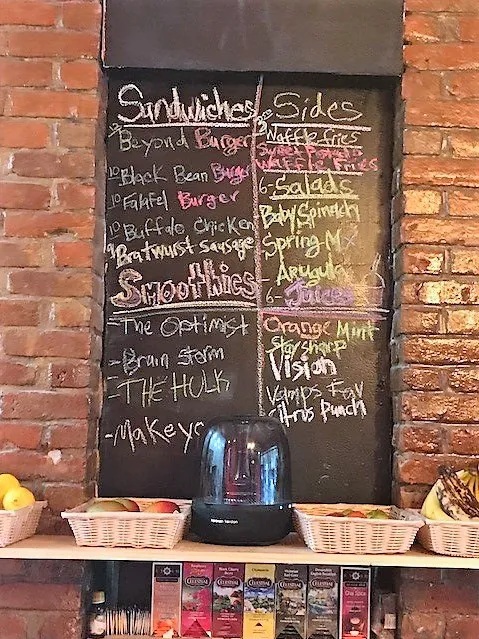 Sandwiches
Beyond Burger
10 Black Bean Burger
10 Falafel Burger
10 Buffalo Chicken
9 Bratwurst Sausage
Smoothies
- The Optimist
- Brain Storm
- THE HULK
- Make yo
Sides
Waffle fries
Sweet Potato
Waffle Fries
6- Salads
Baby Spinach
Spring Mix
Arugula
6- Juices
Orange Mint
Stay Sharp
Vision
Vamps Fav
Citrus Punch
harman kardon
CELESTIAL
CELESTIAL
CELESTIAL
CELESTIAL
CELESTIAL